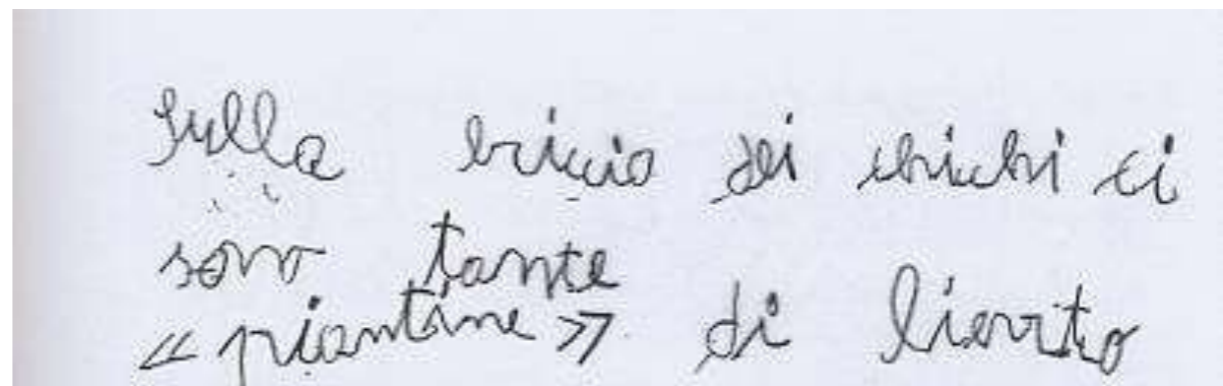 Sulla bricio dei chichi ci
sono tante
« piantine » di lievito